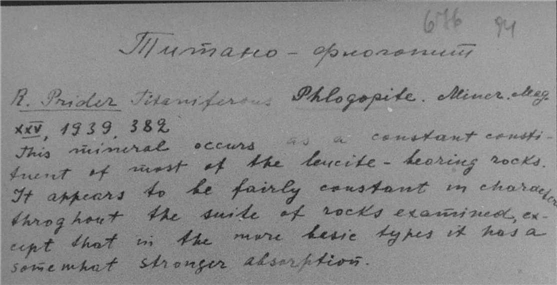 94
Титано-флогопит
R. Prider Titaniferous Phlogopite. Miner. Mag
XXV, 1939, 382
This mineral occurs as a constant consti-
tuent of most of the leucite-bearing rocks.
It appears to be fairly constant in character
throghout the suite of rocks examined, ex-
cept that in the more basic types it has a
somewhat stronger absorption.